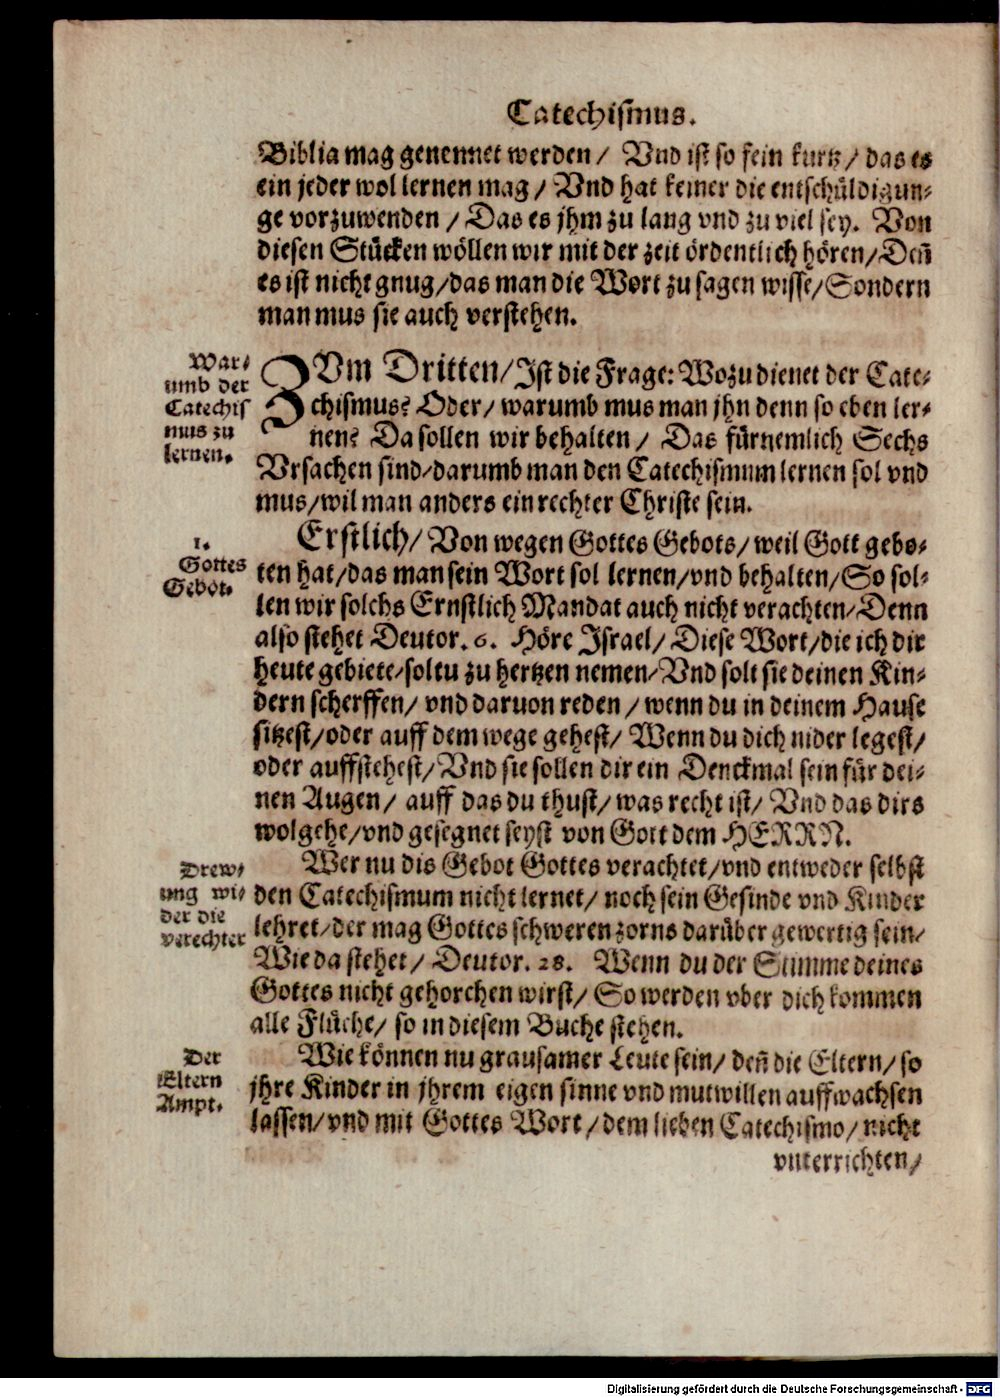 Catechismus.
Biblia mag genennet werden / Vnd ist so fein kurtz / das es
ein jeder wol lernen mag / Vnd hat keiner die entschüldigun-
ge vorzuwenden / Das es jhm zu lang vnd zu viel sey. Von
diesen Stücken wöllen wir mit der zeit ördentlich hören / Deñ
es ist nicht gnug / das man die Wort zu sagen wisse / Sondern
man mus sie auch verstehen.
War-
umb der
Catechis
mus zu
lernen.
ZVm Dritten / Ist die Frage: Wozu dienet der Cate-
chismus? Oder / warumb mus man jhn denn so eben ler-
nen? Da sollen wir behalten / Das fürnemlich Sechs
Vrsachen sind / darumb man den Catechismum lernen sol vnd
mus / wil man anders ein rechter Christe sein.
1.
Gottes
Gebot.
Erstlich / Von wegen Gottes Gebots / weil Gott gebo-
ten hat / das man sein Wort sol lernen / vnd behalten / So sol-
len wir solchs Ernstlich Mandat auch nicht verachten / Denn
also stehet Deutor. 6. Höre Israel / Diese Wort / die ich dir
heute gebiete / soltu zu hertzen nemen / Vnd solt sie deinen Kin-
dern scherffen / vnd daruon reden / wenn du in deinem Hause
sitzest / oder auff dem wege gehest / Wenn du dich nider legest /
oder auffstehest / Vnd sie sollen dir ein Denckmal sein für dei-
nen Augen / auff das du thust / was recht ist / Vnd das dirs
wolgehe / vnd gesegnet seyst von Gott dem HERRN.
Drew-
ung wi-
der die
verechter
Wer nu dis Gebot Gottes verachtet / vnd entweder selbst
den Catechismum nicht lernet / noch sein Gesinde vnd Kinder
lehret / der mag Gottes schweren zorns darüber gewertig sein /
Wie da stehet / Deutor. 28. Wenn du der Stimme deines
Gottes nicht gehorchen wirst / So werden vber dich kommen
alle Flüche / so in diesem Buche stehen.
Der
Eltern
Ampt.
Wie können nu grausamer Leute sein / deñ die Eltern / so
jhre Kinder in jhrem eigen sinne vnd mutwillen auffwachsen
lassen / vnd mit Gottes Wort / dem lieben Catechismo / nicht
vnterrichten /
Digitalisierung gefördert durch die Deutsche Forschungsgemeinschaft - DFG